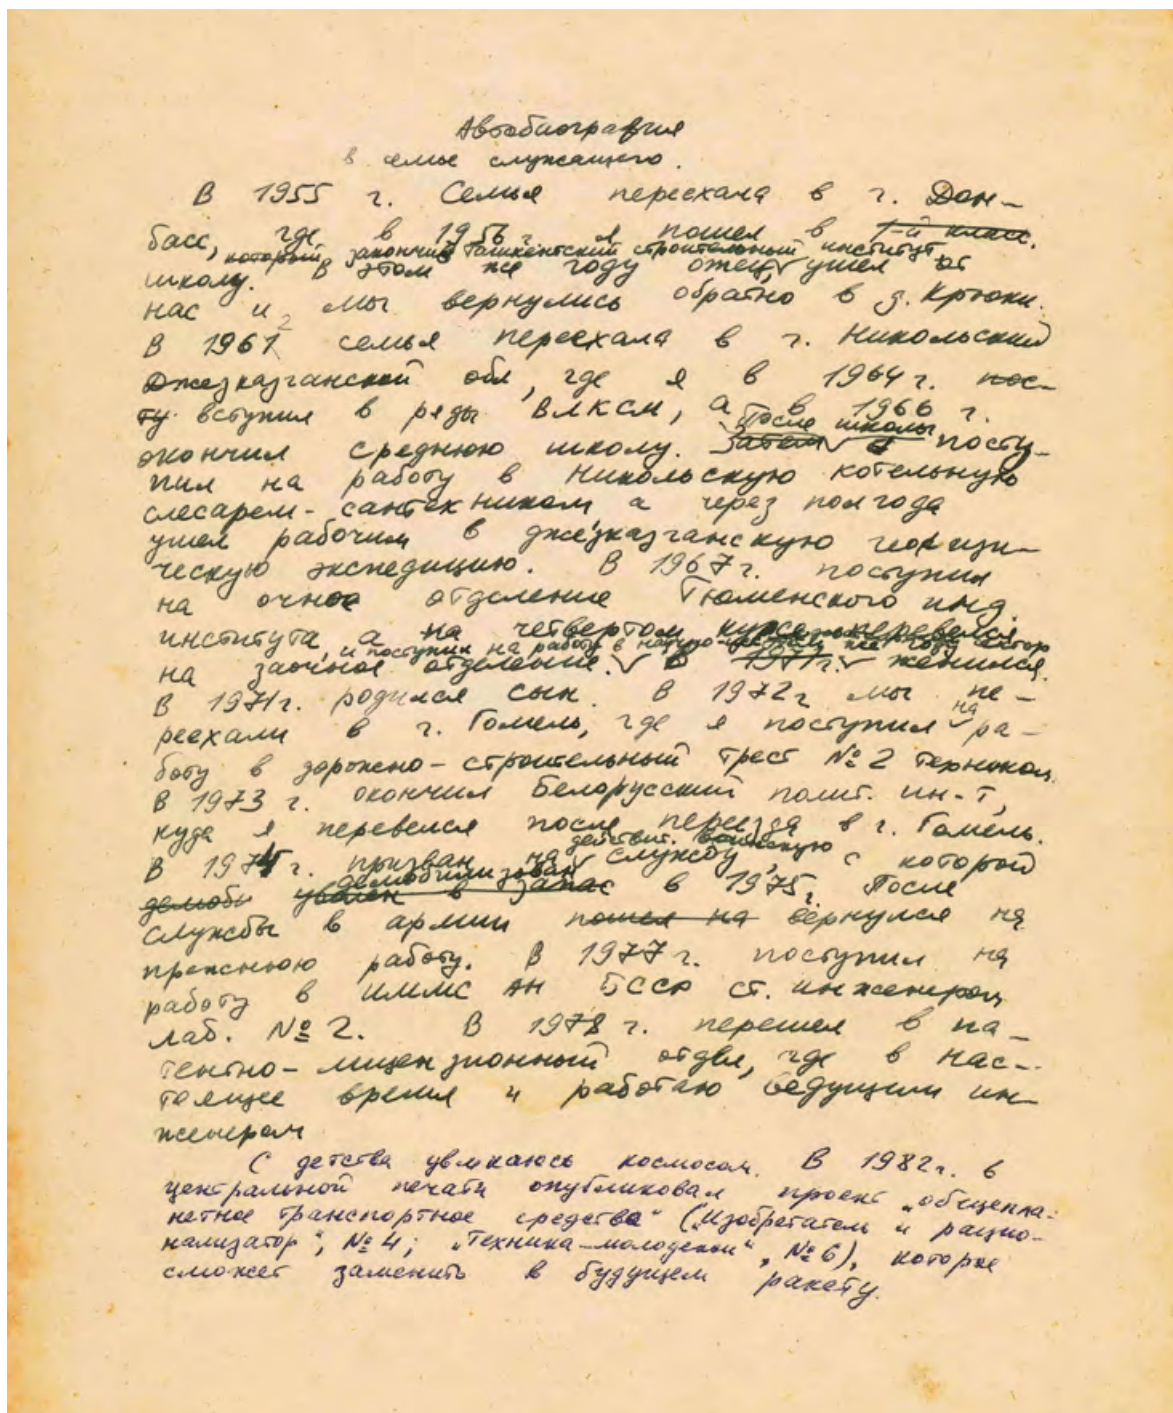 Автобиография
в семье служащего.
В 1955 г. Семья переехала в г. Дон-
басс, где в 1956 г. я пошел в 1-й класс.
который закончил Ташкентский строительный институт
школу. В этом же году отец, ушел от
нас и мы вернулись обратно в д. Крюки.
2
В 1961 семья переехала в г. Никольский
Джезказганской обл, где я в 1964 г. пос-
ту вступил в ряды ВЛКСМ, а в 1966 г.
После школы
окончил среднюю школу. Затем я посту-
пил на работу в Никольскую котельную
слесарем-сантехником а через полгода
ушел рабочим в джезказганскую геофизи-
ческую экспедицию. В 1967 г. поступил
на очное отделение Тюменского инд.
института, а на четвертом курсе перевелся
и поступил на работу в научно- сектор
на заочное отделение. В 1971 г. женился.
В 1971 г. родился сын. В 1972 г мы пе-
на
реехали в г. Гомель, где я поступил ра-
боту в дорожно-строительный трест № 2 техником.
В 1973 г. окончил Белорусский полит. ин-т,
куда я перевелся после переезда в г. Гомель.
действит. воинскую
В 1974 г. призван на службу, с которой
демобилизован
демоби уволен в запас в 1975. После
службы в армии пошел на вернулся на
прежнюю работу. В 1977 г. поступил на
работу в ИММС АН БССР ст. инженером
лаб. № 2. В 1978 г. перешел в па-
тентно-лицензионный отдел, где в нас-
тоящее время и работаю ведущим ин-
женером
С детства увлекаюсь космосом. В 1982 г. в
центральной печати опубликовал проект „общепла-
нетное транспортное средство“ („Изобретатель и рацио-
нализатор“, № 4; „Техника-молодежи“, № 6), которое
сможет заменить в будущем ракету.